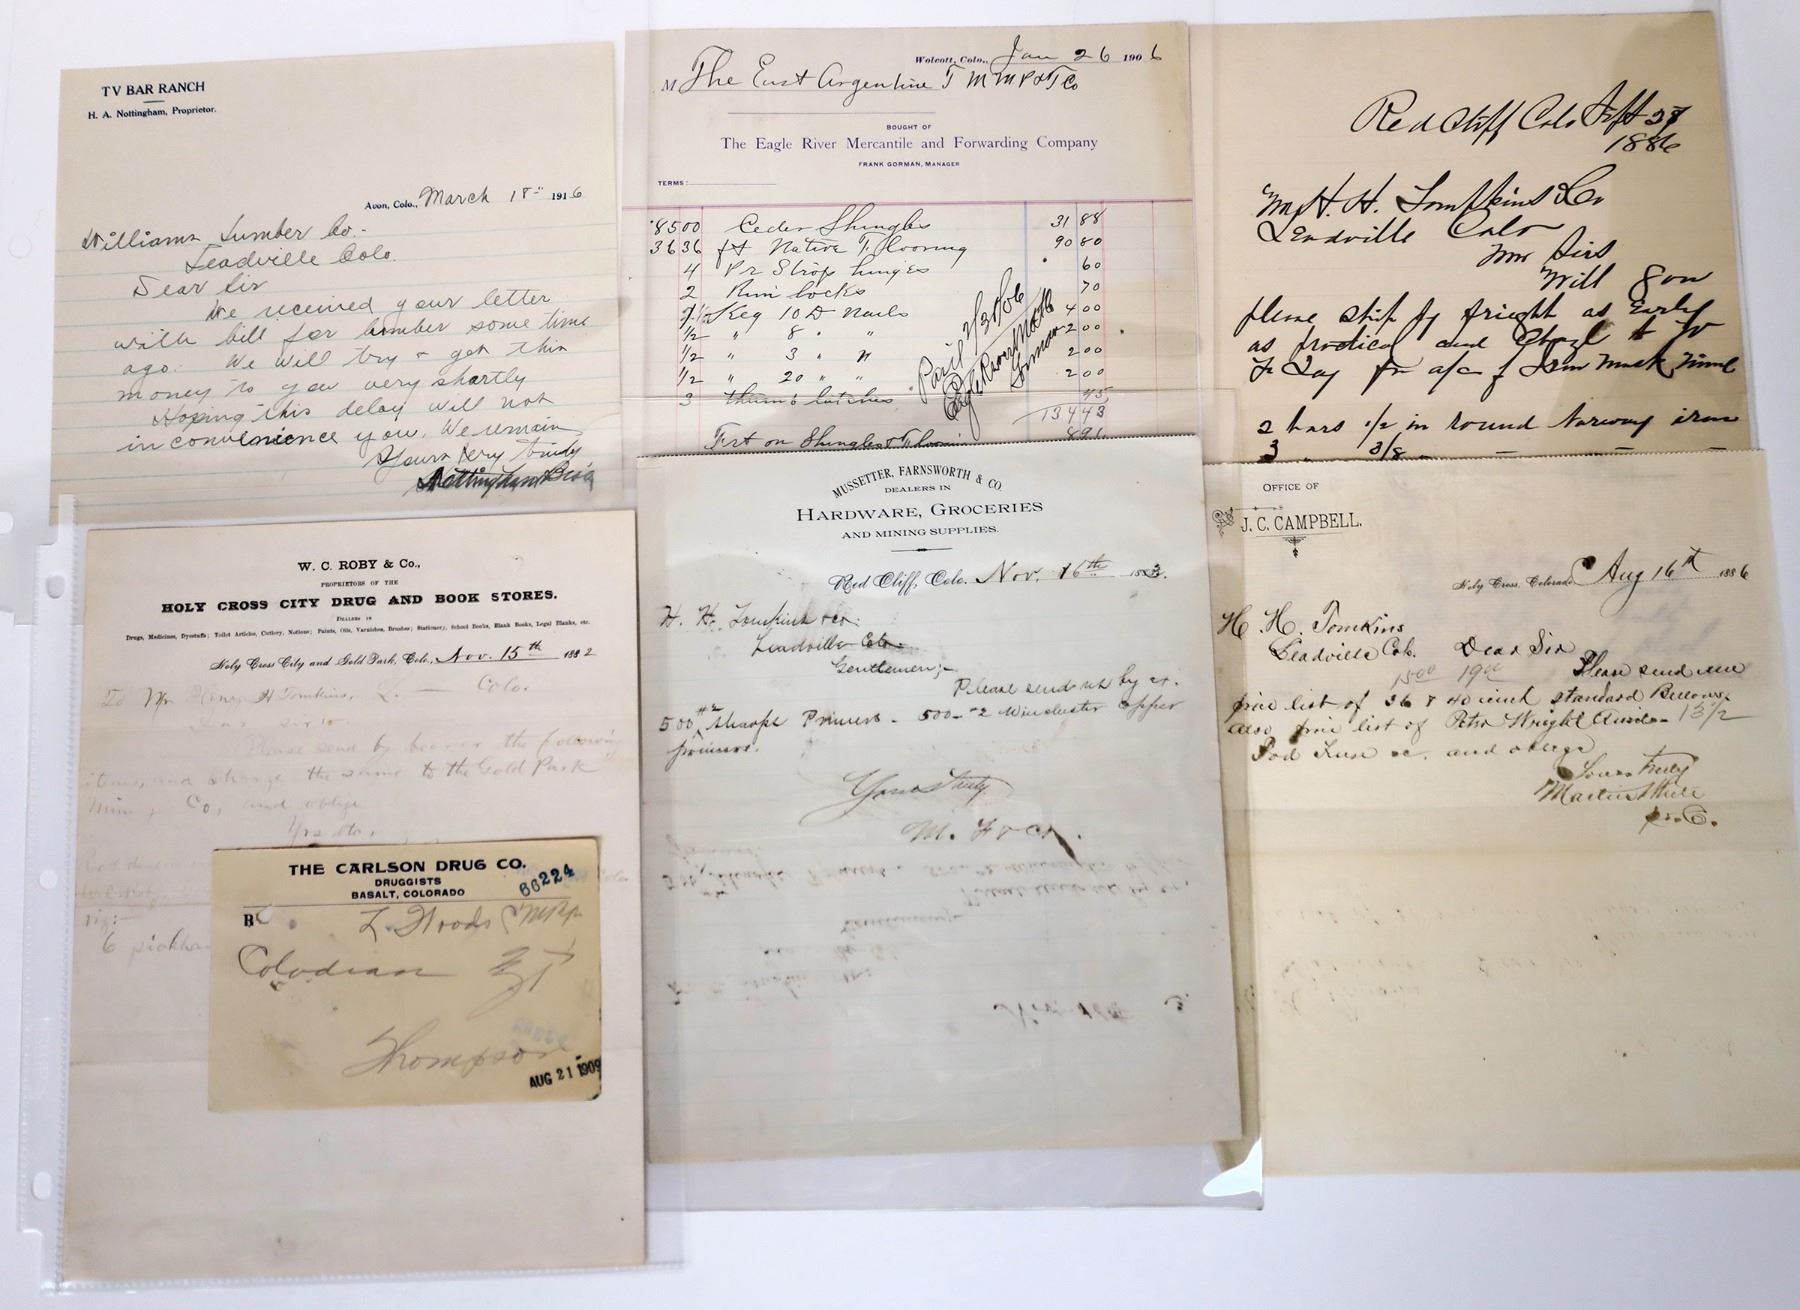 TV BAR RANCH
H. A. Nottingham, Proprietor.
Avon, Colo., March 18" 1916
Williams Lumber Co.
Leadville Colo.
Dear Sir
We received your letter
with bill for lumber some time
ago. We will try + get this
money to you very shortly
Hoping this delay will not
inconvenience you. We remain
Yours very truly
Nottingham Bros
Wolcott, Colo., Jan 26 1906
M The East Argentine T M M P & T Co
BOUGHT OF
The Eagle River Mercantile and Forwarding Company
FRANK GORMAN, MANAGER
TERMS:
8500 Ceder Shingles 31 88
3636 ft Native T. Flooring 90 80
4 Pr Strop hinges 60
2 Rim locks 70
1 Keg 10 D Nails 4 00
1/2 " 8 " " 2 00
1/2 " 3 " " 2 00
1/2 " 20 " " 2 00
3 thumb latches 45
134 43
Frt on Shingles & Flooring 8 91
Paid 2/3/06
Eagle River M & F Co
Gorman
Red Cliff Colo Sept 28
1886
H. H. Tompkins & Co
Leadville Colo
Dear Sirs
Will you
please ship by frieght as Early
as practical and Charge to
for a/c of Iron Mask Mine
2 bars 1/2 in round Norway iron
3 " 3/8 — — —
W. C. ROBY & Co.,
PROPRIETORS OF THE
HOLY CROSS CITY DRUG AND BOOK STORES.
DEALERS IN
Drugs, Medicines, Dyestuffs; Toilet Articles, Cutlery, Notions; Paints, Oils, Varnishes, Brushes; Stationery, School Books, Blank Books, Legal Blanks, etc.
Holy Cross City and Gold Park, Colo., Nov. 15th 1882
To Mr. H Tomkins, L. — Colo.
Dear sir
Please send by bearer the following
items, and charge the same to the Gold Park
Mining Co, and oblige
Yrs
viz:—
6
THE CARLSON DRUG CO.
DRUGGISTS
BASALT, COLORADO
66224
R
L Woods
Thompson
AUG 21 1909
MUSSETTER, FARNSWORTH & CO.
DEALERS IN
HARDWARE, GROCERIES
AND MINING SUPPLIES.
Red Cliff, Colo. Nov. 16th 1883.
H. H. Tomkins & co.
Leadville Colo.
Gentlemen;—
Please send us by ex.
500 #2 Sharps Primers - 500 - #2 Winchester Copper
primers.
Yours truly
M. F & Co.
OFFICE OF
J. C. CAMPBELL.
Holy Cross, Colorado Aug 16th 1886
H. H. Tomkins
Leadville Col. Dear Sir
15 00 19 00 Please send me
price list of 36 & 40 inch standard Bellows
also price list of Peter Wright Anvils - 13 1/2
and oblige
Yours Truly